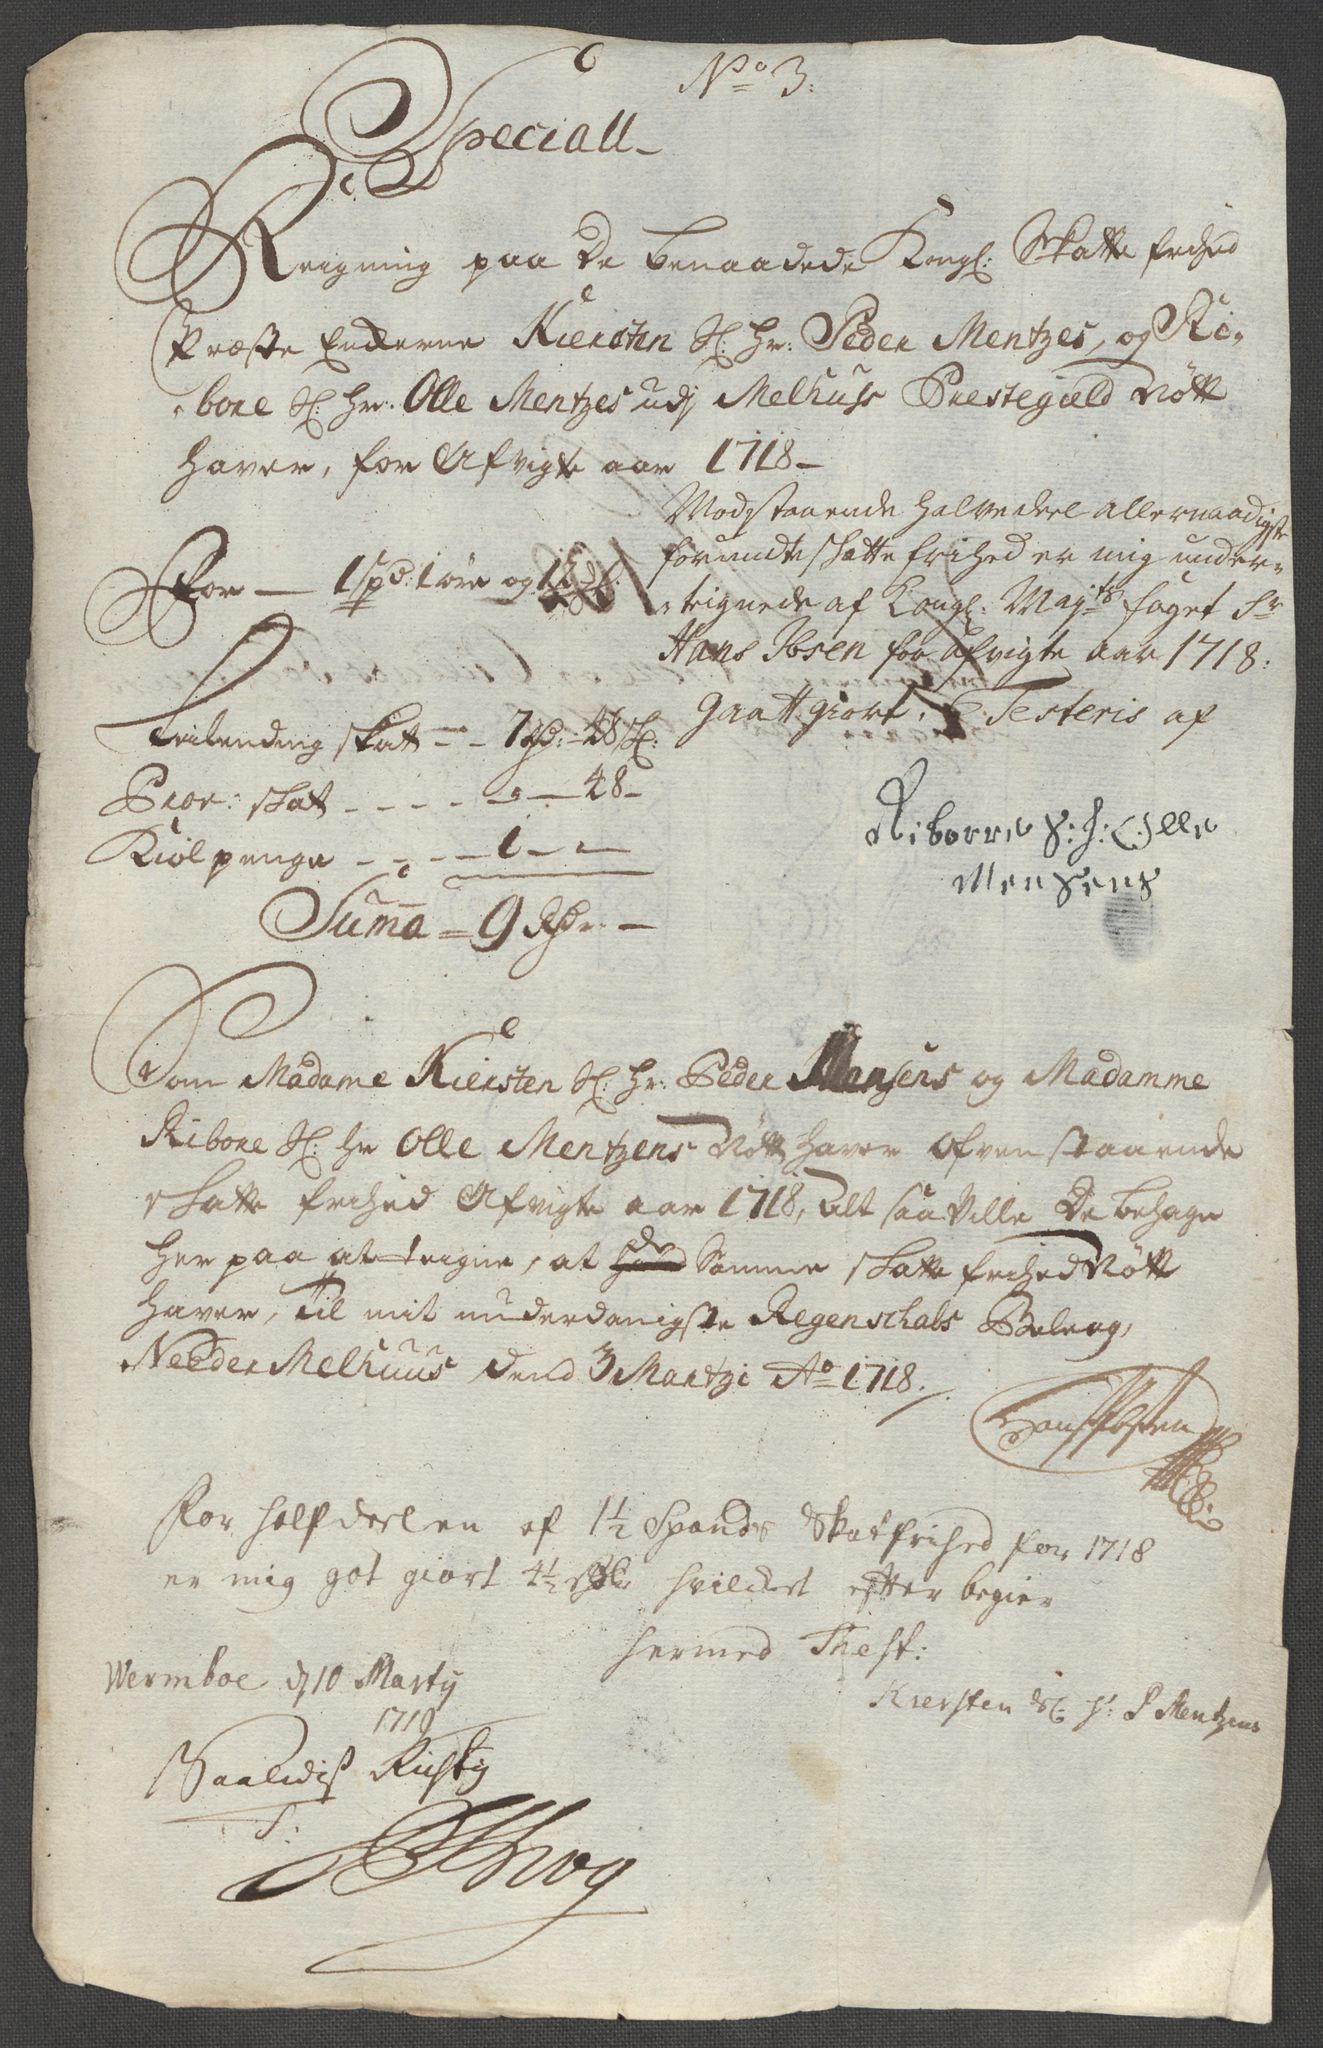 No 3:
Speciall
Reigning paa De benaadede Kongl: Skatte frihed
Præste Enkerne Kiersten Sl: Hr: Peder Mentzes, og Ri-
bore Sl: Hr: Olle Mentzes udj Melhuus Prestegield Nött
haver, for Afvigte aar 1718
For — 1 spd: 1 øre og
Leilending skat - - 7 Rd: 48 s:
Prov: skat - - - - - 48 -
Kiølpenge - - - 1 - -
Summa = 9 Rdr -
Modstaaende halvedeel allernaadigst
forundte skatte frihed er mig under-
teignede af Kongl: Mayts foget Sr
Hans Ibsen for afvigte aar 1718:
gaatt giort, Testeris af
Riborre S: H: Olle
Mensens
Som Madame Kiersten Sl: Hr: Peder Mensens og Madamme
Ribore Sl: Hr Olle Mentzens Nött haver ofvenstaaende
skatte frihed Afvigte aar 1718, alt saa Ville De behage
her paa at teigne, at de Samme skatte frihed Nött
haver, Til mit underdanigste Regenschabs Beleag,
Neder Melhuus Dend 3 Martzi Ao 1718.
Hans Ibsen
For halfdeelen af 1½ Spands Skatfrihed for 1718
er mig got giort 4½ Rdr hvilcket efter begier
hermed Thest:
Wermboe d 10 Marty
1719
Kiersten Sl: Hr: P Mentzens
Saaledis Rigtig
T: